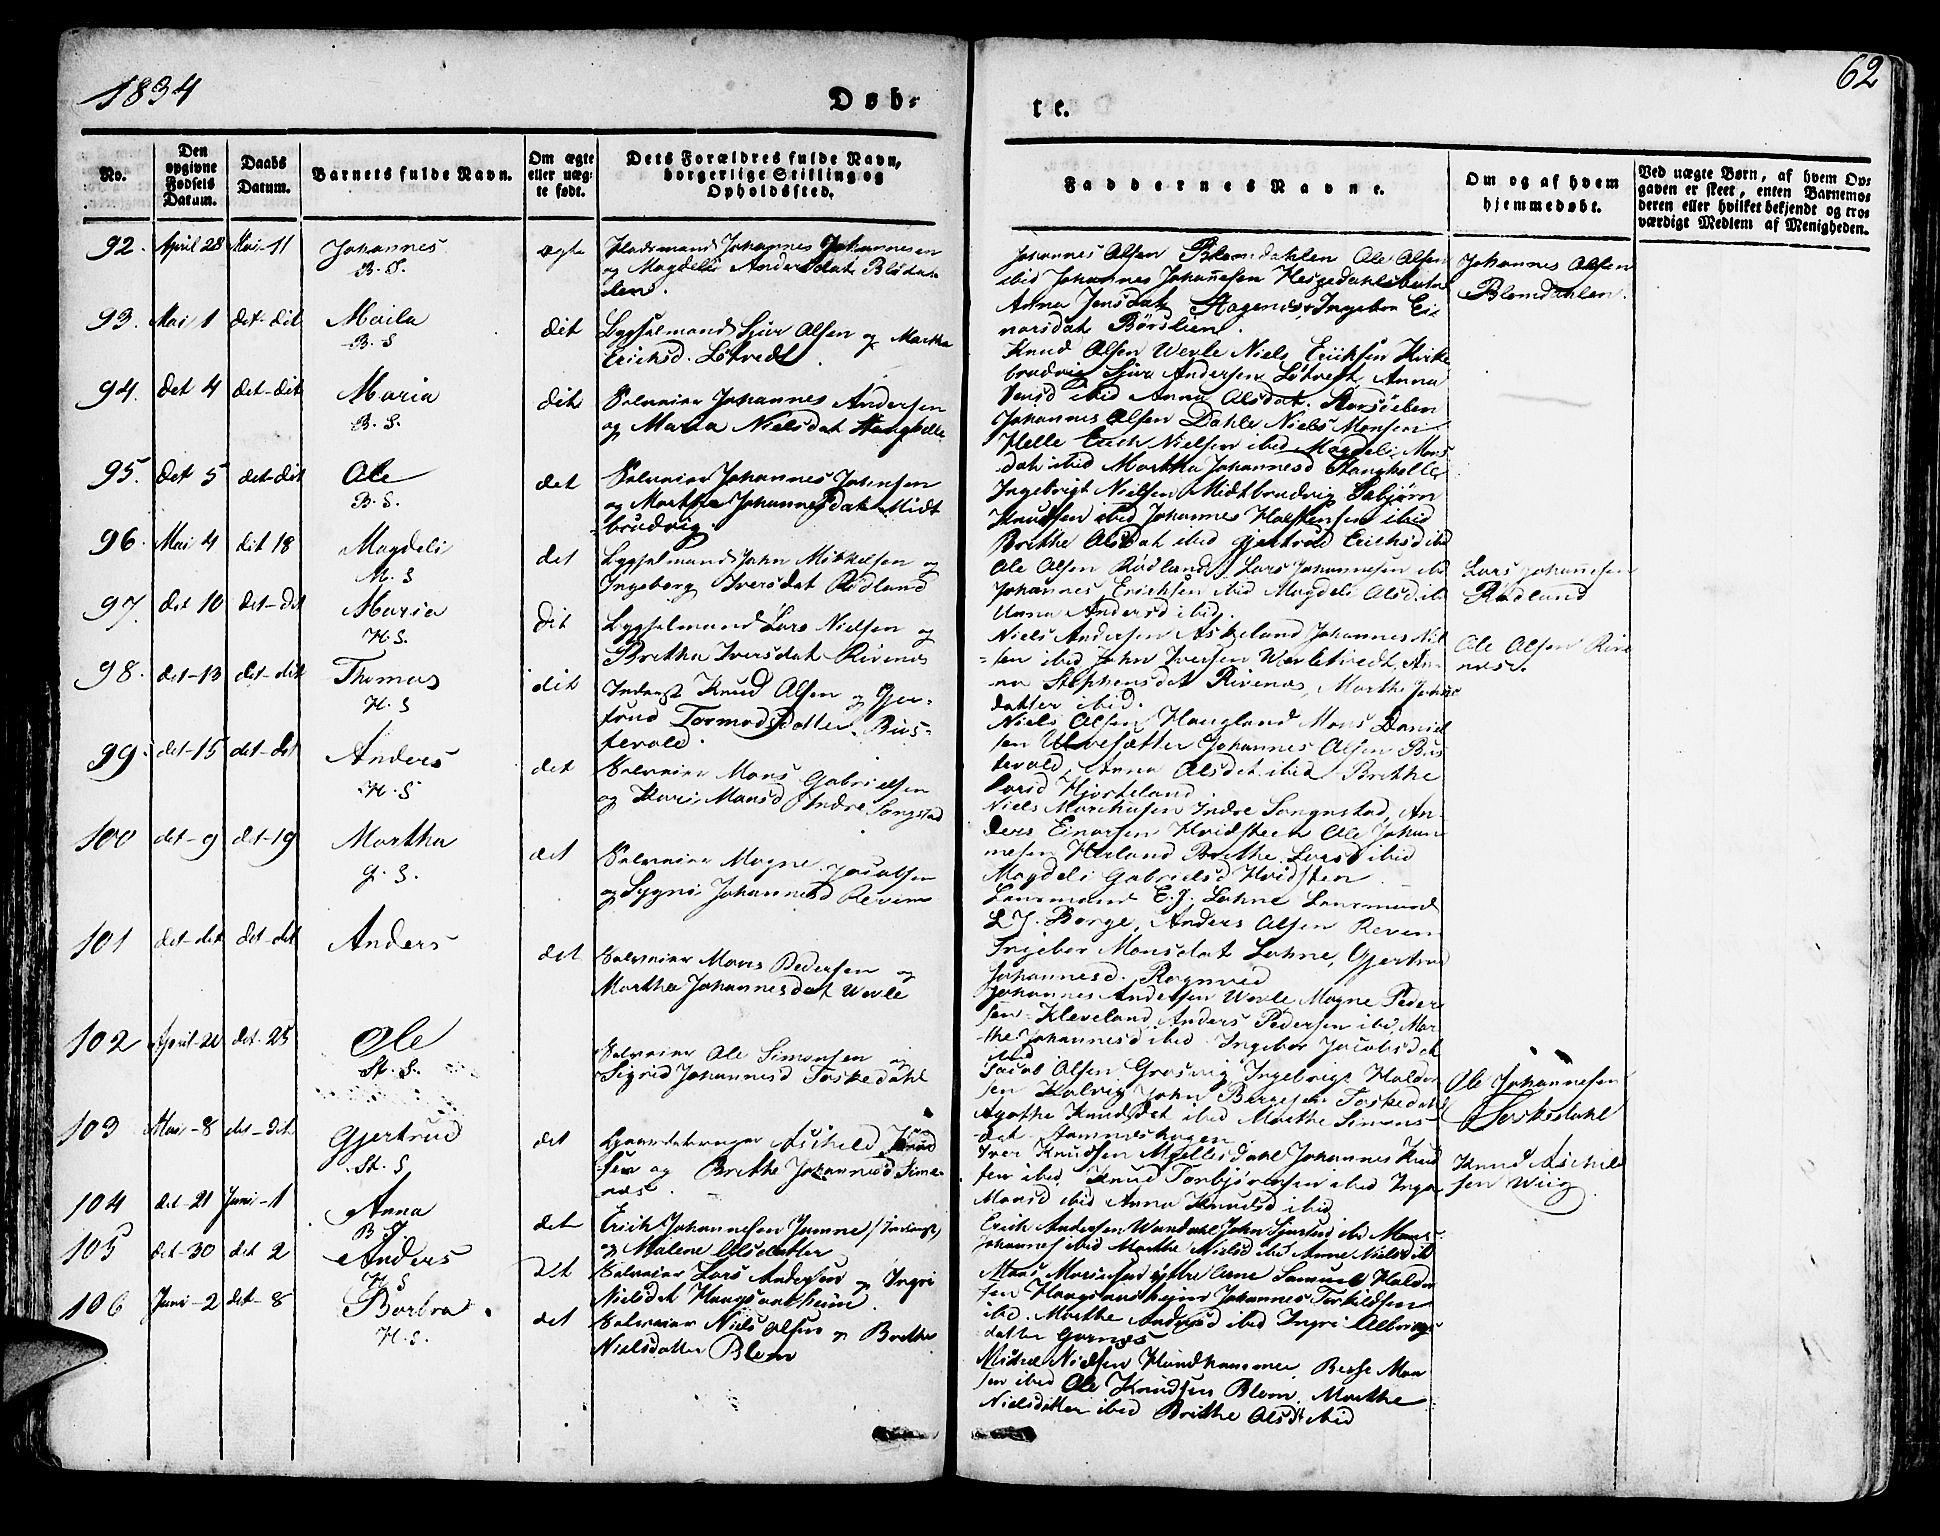 1834
Døb-
te.
62
No.
Den opgivne Fødsels Datum.
Daabs Datum.
Barnets fulde Navn.
Om ægte eller uægte født.
Dets Forældres fulde Navn, borgerlige Stilling og Opholdssted.
Faddernes Navne.
Om og af hvem hjemmedøbt.
Ved uægte Børn, af hvem Opgaven er skeet, enten Barnemoderen eller hvilket bekjendt og troværdigt Medlem af Menigheden.
92. April 28 Mai-11 Johannes ægte Pladsmand Johannes Johannesen
B. S. og Magdeli Andersdat Blomdah
len.
Johannes Olsen Blomdahlen Ole Olsen
ibid Johannes Johannesen
Anna Jensdat Hagenæs, Ingebor Ei-
narsdat Børslien.
Johannes Olsen
Blomdahlen.
93. Mai 1 det-dit Maila dit Lygselmand Siur Olsen og Martha
B. S Erichsd. Løtvedt
Knud Olsen Werle Niels Erichsen Kirke
brudvig Siur Andersen Løtvedt, Anna
ibid Anna Olsdat.
94. det 4 det-dit Maria dit Selveier Johannes Andersen
B. S. og Maria Nielsdat Stanghelle
Johannes Olsen Dahle Niels Monsen
Helle Erich Nielsen ibid Magdeli Mons
dat ibid Martha Johannesd Stanghelle
95. det 5 det-dit Ole det Selveier Johannes Johnsen
B. S. og Martha Johannesdat Midt
brudvig.
Ingebrigt Nielsen Midtbrudvig
Knudsen ibid Johannes Halstensen ibid
Brithe Olsdat ibid Gjertrud Erichsd ibid
96. Mai 4 dit 18 Magdeli det Lygselmand John Mikkelsen og
M. S Ingeborg Iversdat Rødland
Ole Olsen Rødland, Lars Johannesen ibid
Johannes Erichsen ibid Magdeli Olsd ibid
Anna Andersd ibid.
Lars Johanesen
Rødland
97. det 10 det-det Maria dit Lygselmand Lars Nielsen og
H. S. Britha Iversdat Rivenæs
Niels Andersen Askeland Johannes Nil-
sen ibid John Iversen Werletvedt, An-
na Stephensdat Rivenæs, Marthe Johns
datter ibid.
Ole Olsen Rive
næs.
98. det-13 det-dit Thomas dit Inderst Knud Olsen og Gjer-
H. S trud Tormodsdatter Bus-
tevold.
Niels Olsen Haugland Mons Daniel
sen Ulvesætter Johannes Olsen Bus
tevold, Anna Olsdat ibid Brithe
Larsd Hjorteland
99. det-15 det-det Anders det Selveier Mons Gabrielsen
H. S og Kari Monsd Indre Songstad
Niels Indre Songnstad, An-
ders Einarsen Hvidsteen Ole Johan-
nesen Herland Brithe Larsd ibid
Magdeli Gabrielsd Hvidsten
100 det-9 det-19 Martha det Selveier Magne Jacobsen
G. S. og Sygni Johannesd Reven
Lansmand E. J. Lohne Lansmand
L J. Borge, Anders Olsen Reven
Ingebor Monsdat Lohne, Gjertrud
Johannesd.
101 det-det det-det Anders det Selveier Mons Pedersen og
Martha Johannesdat Werle
Johannes Andersen Werle Magne Peder
sen Kleveland, Anders Pedersen ibid, Mar-
the Johannesd ibid Ingebor Jacobsdat
ibid
102 April-20 det-25 Ole Selveier Ole Simonsen og
St. S. Sigrid Johannesd Toskedahl
Jacob Olsen Ingebrigt Haldor
sen Kalvig John Børgesen Toskedahl
Agathe Knudsdet ibid Marthe Simons-
dat
Ole Johannesen
Toskedahl
103 Mai-8 det-det Gjertrud det Aschild Knud
St. S sen og Brithe Johannesd Sime-
næs.
Iver Knudsen Møllesdahl Johannes Knud
sen ibid, Knud Torbjørnsen ibid Inga
Monsd ibid Anna Knudsd ibid
Knud Aschild
sen Wiig
104 det-21 Juni-1 Anna det Erich Johannesen Jamne /Inderst/
B S og Malene Olsdatter
Erich Andersen John ibid Mons
Johannes ibid Marthe Nielsd ibid Anne Nielsd ibid
105 det-30 det 2 Anders Det Selveier Lars Andersen og Ingri
H S Nielsdet Haugsvarheim
Mons ytre Arne Samuel Haldor
sen Johannes Torkildsen
ibid. Marthe Andersd ibid Ingri
datter Garnes
106 Juni-2 det-8 Barbra det Selveier Niels Olsen og Brithe
H. S. Nielsdatter Blom
Michel Nielsen Hundhammer, Mon
sen ibid Ole Knudsen Blom, Marthe
Nielsdatter ibid Brithe Olsd ibid